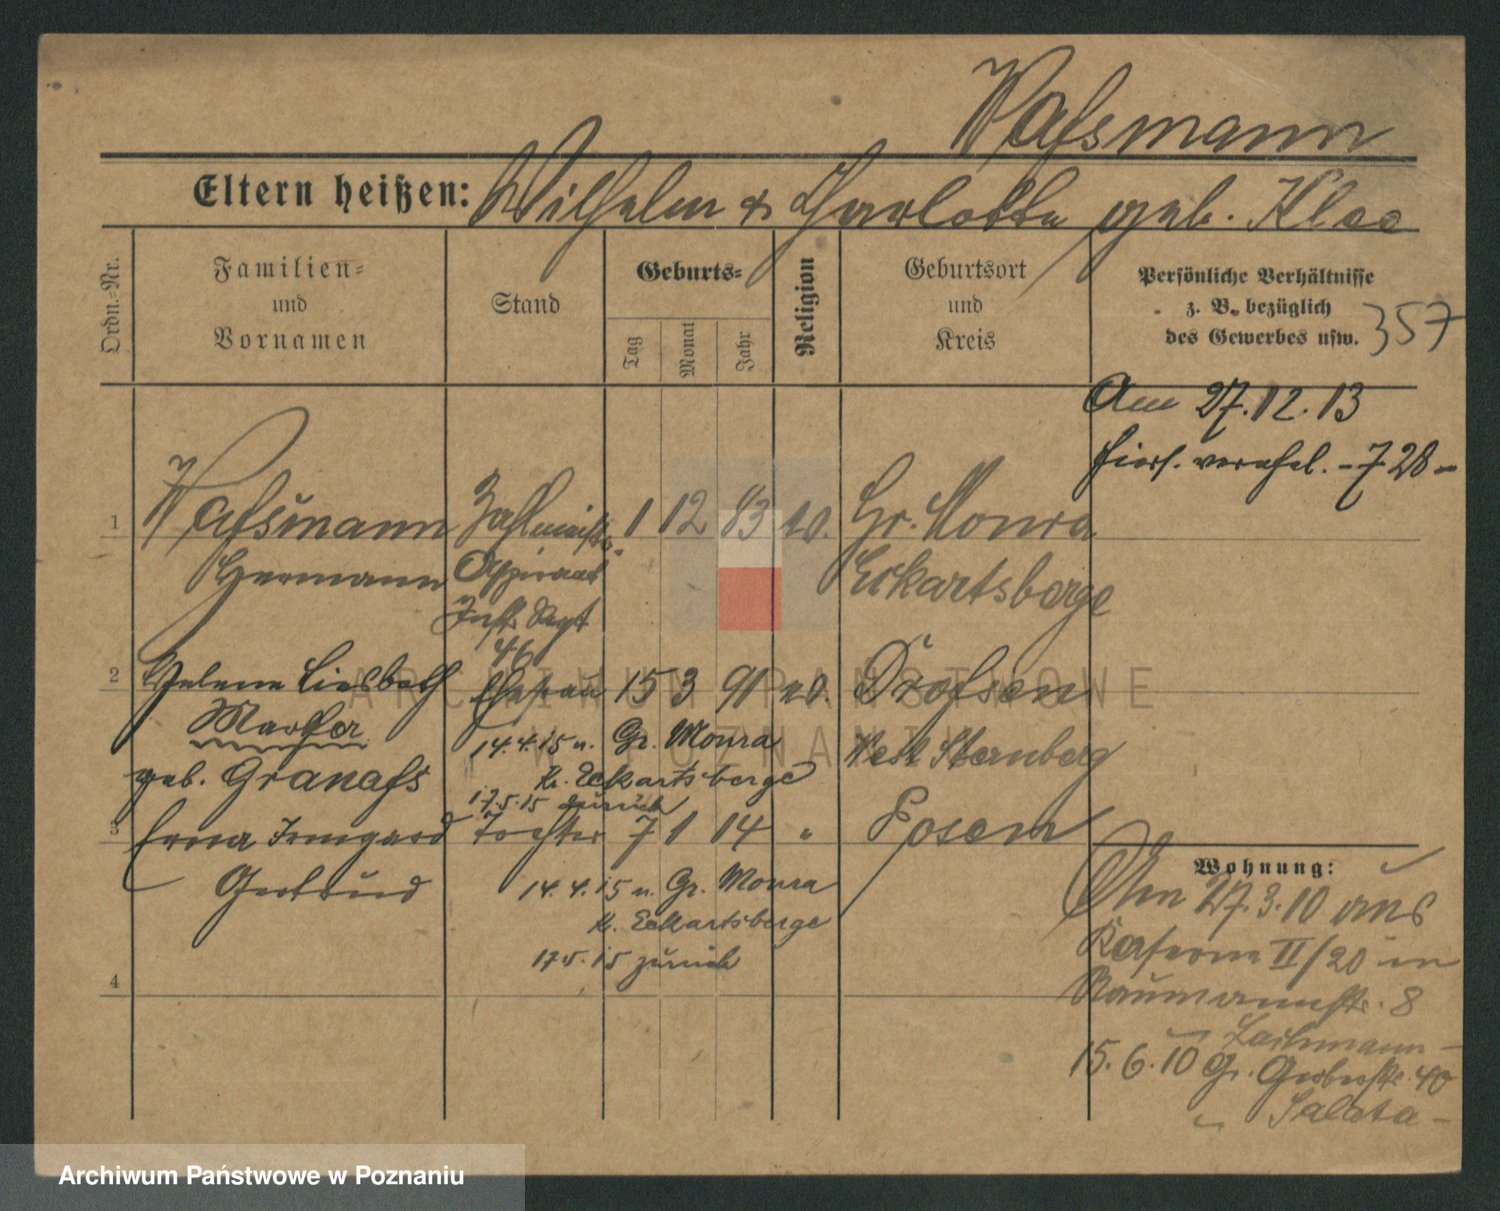 Waßmann
Eltern heißen: Wilhelm & Charlotte geb. Klee
Ordn.-Nr.
Familien-
und
Vornamen
Stand
Geburts-
Tag
Monat
Jahr
Religion
Geburtsort
und
Kreis
Persönliche Verhältnisse
z. B. bezüglich
des Gewerbes usw.
357
Am 27.12.13
hiers. verehel. - 728 -
1 Waßmann Zahlmeister 1 12 83 ev. Gr. Monra
Hermann Aspirant Eckartsberge
Inftr. Regt
46
2 Helene Liesbeth Ehefrau 15 3 91 ev. Droßen
Marther 14.4.15 n. Gr. Monra West Sternberg
geb. Granaß Kr. Eckartsberge
17.5.15 zurück
3 Erna Irmgard Tochter 7 1 14 " Posen
Gertrud 14.4.15 n. Gr. Monra
Kr. Eckartsberge
17.5.15 zurück
4
Wohnung:
Am 27.3.10 aus
Kaserne II/20 in
Naumannstr. 8
Lachmann -
15.6.10 Gr. Gerberstr. 40
Salata -
ARCHIWUM PAŃSTWOWE
W POZNANIU
Archiwum Państwowe w Poznaniu